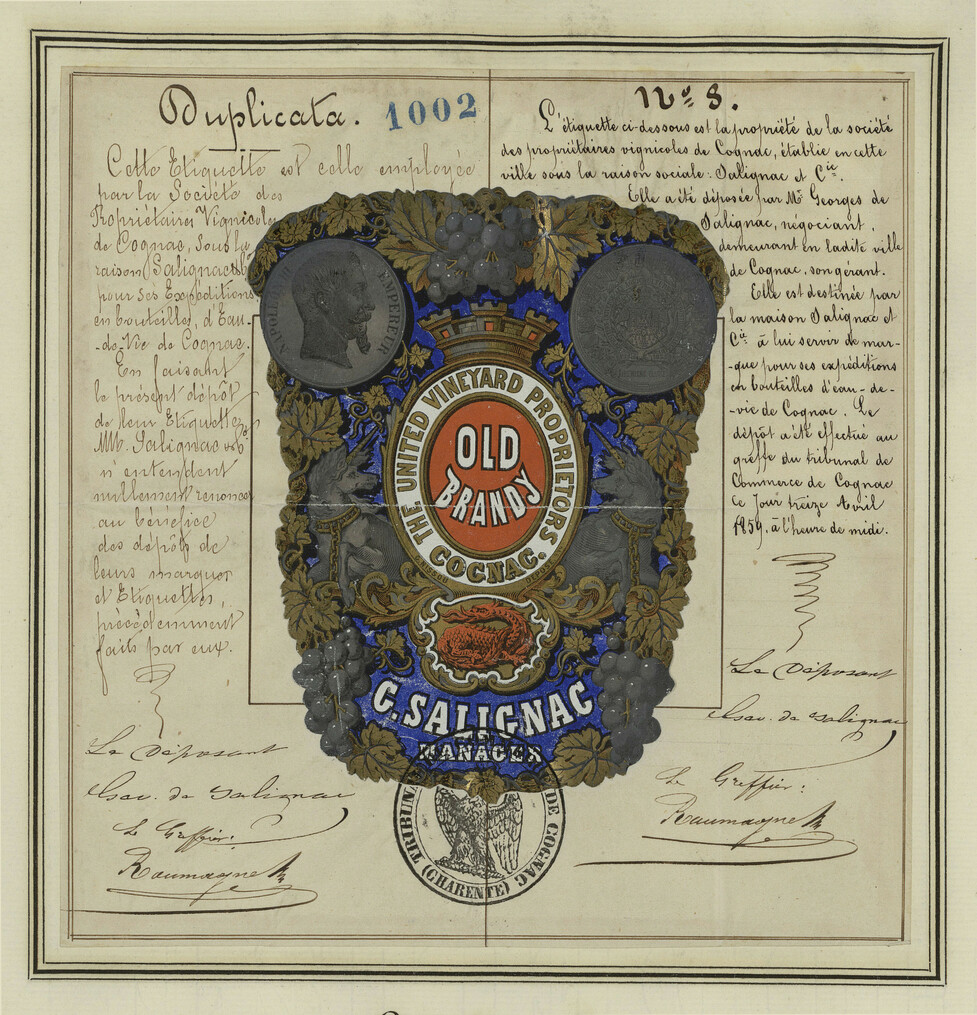 Duplicata.
1002
Cette Etiquette est celle employée
par la Société des
Propriétaires Vignicoles
de Cognac, sous la
raison Salignac & Cie
pour ses Expéditions
en bouteilles, d'Eau-
-de-Vie de Cognac.
En faisant
le présent dépôt
de leur Etiquette,
MM. Salignac & Cie
n'entendent
nullement renoncer
au bénéfice
des dépôts de
leurs marques
et Etiquettes,
précédemment
faits par eux.
Le Déposant
Geo. de Salignac
Le Greffier:
Raumagne
No 8.
L'étiquette ci-dessous est la propriété de la société
des propriétaires vignicoles de Cognac, établie en cette
ville sous la raison sociale: Salignac et Cie.
Elle a été déposée par Mr Georges de
Salignac, négociant,
demeurant en ladite ville
de Cognac, son gérant.
Elle est destinée par
la maison Salignac et
Cie à lui servir de mar-
-que pour ses expéditions
en bouteilles d'eau-de-
-vie de Cognac. Le
dépôt a été effectué au
greffe du tribunal de
Commerce de Cognac
ce jour treize Avril
1859, à l'heure de midi.
Le Déposant
Geo. de Salignac
Le Greffier:
Raumagne
NAPOLEON III EMPEREUR
THE UNITED VINEYARD PROPRIETORS
COGNAC.
OLD
BRANDY
G. SALIGNAC
MANAGER
TRIBUNAL DE COGNAC
(CHARENTE)